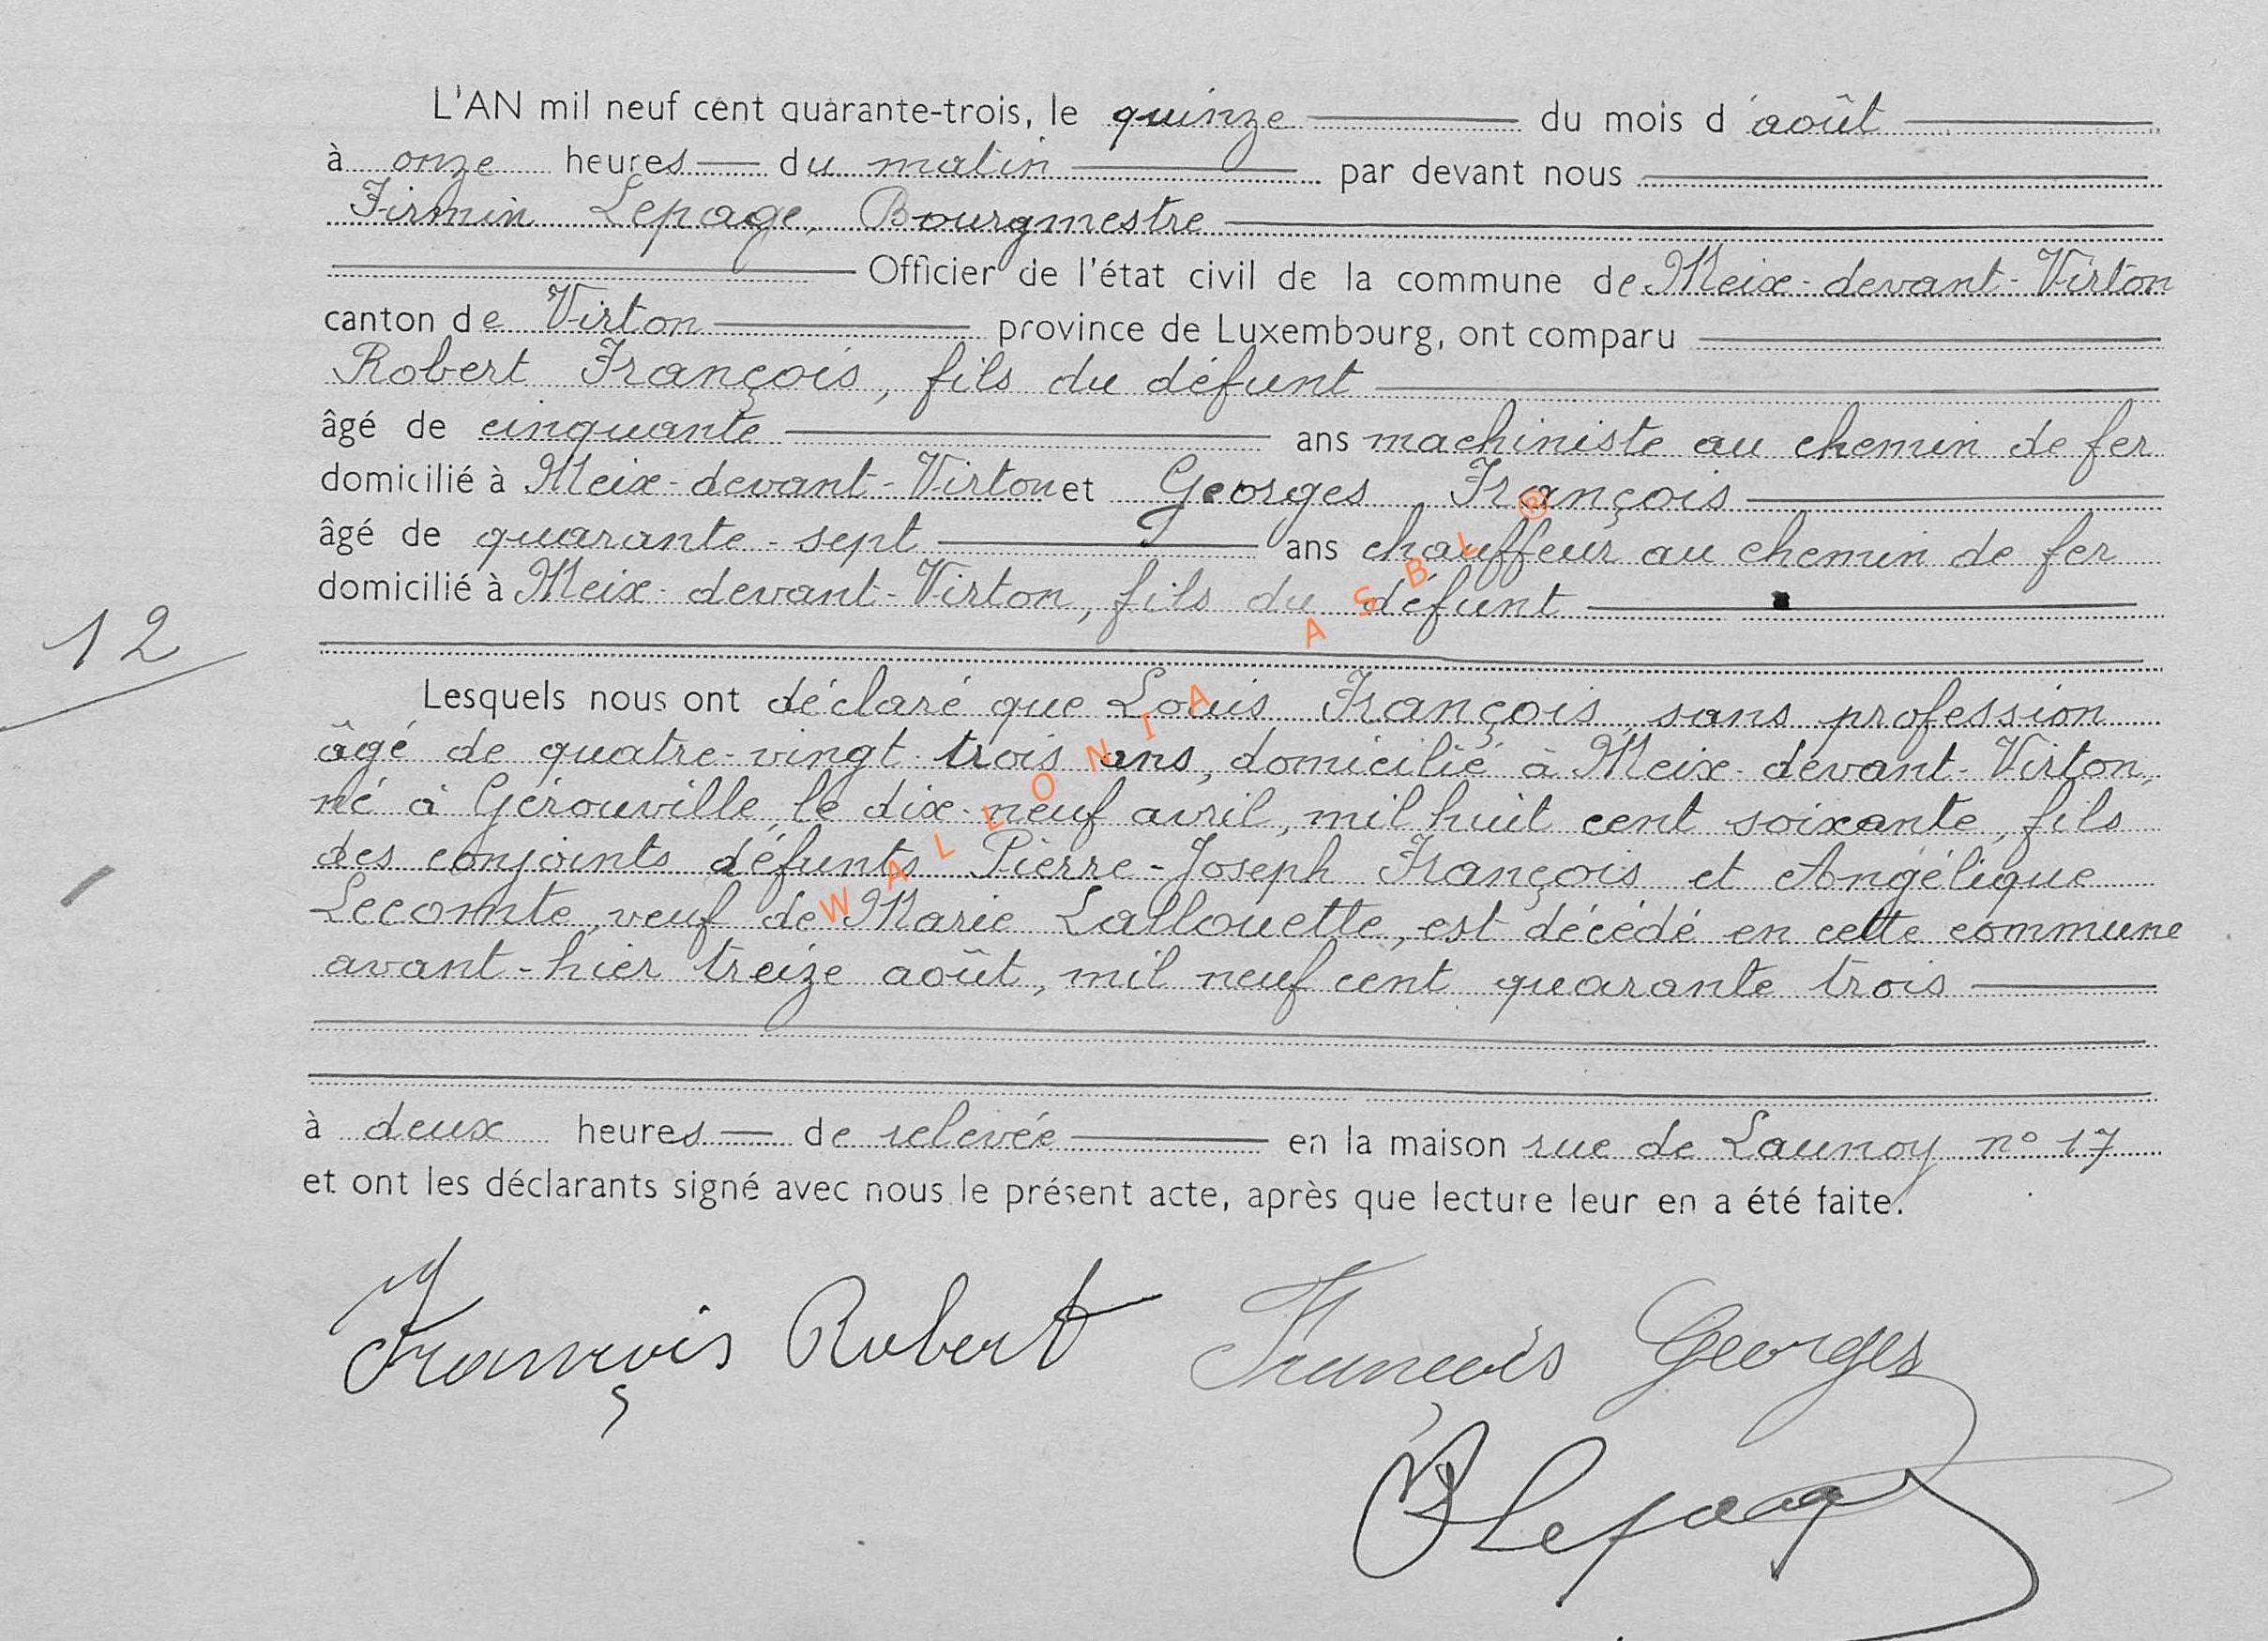 L'AN mil neuf cent quarante-trois, le quinze du mois d'août
à onze heures du matin par devant nous
Firmin Lepage, Bourgmestre
Officier de l'état civil de la commune de Meix-devant-Virton
canton de Virton province de Luxembourg, ont comparu
Robert François, fils du défunt
âgé de cinquante ans machiniste au chemin de fer
domicilié à Meix-devant-Virton et Georges François
âgé de quarante-sept ans chauffeur au chemin de fer
domicilié à Meix-devant-Virton, fils du défunt
12
Lesquels nous ont déclaré que Louis François, sans profession
âgé de quatre-vingt-trois ans, domicilié à Meix-devant-Virton,
né à Gérouville, le dix-neuf avril, mil huit cent soixante, fils
des conjoints défunts Pierre-Joseph François et Angélique
Lecomte, veuf de Marie Lallouette, est décédé en cette commune
avant-hier treize août, mil neuf cent quarante trois
à deux heures de relevée en la maison rue de Launoy n° 17
et ont les déclarants signé avec nous le présent acte, après que lecture leur en a été faite.
François Robert François Georges
Lepage
WALLONIA ASBL ®